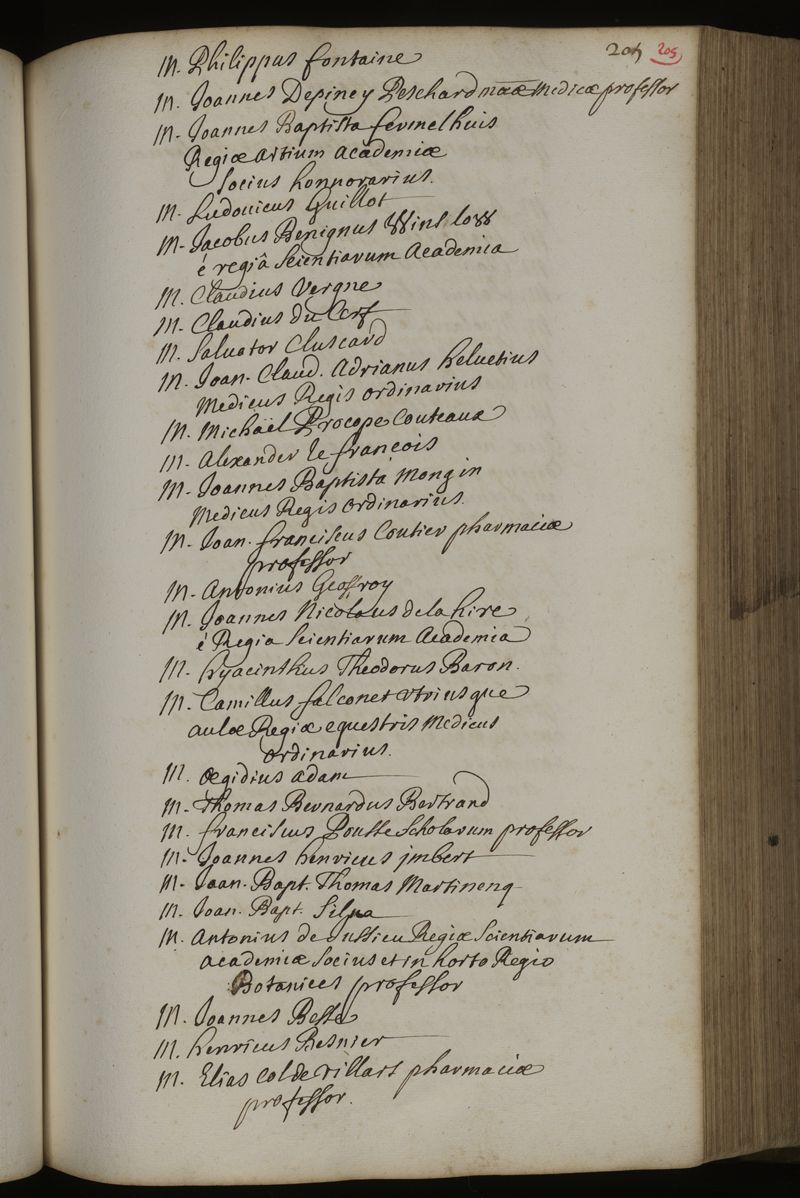 205 205
M. Philippus fontaine
M. Joannes Depiney Peschard mãæ Medicæ professor
M. Joannes Baptista fermelhuis
Regiæ artium academiæ
socius honnorarius.
M. Ludovicus Guillot
M. Jacobus Benignus Winslow
é regiâ scientiarum Academia
M. Claudius Vergne
M. Claudius du Cerf
M. Saluator Cluscard
M. Joan. Claud. Adrianus heluetius
Medicus Regis ordinarius
M. Michaël Procope Couteaux
M. Alexander le francois
M. Joannes Baptista Mongin
Medicus Regis ordinarius.
M. Joan. franciscus Coutier pharmaciæ
professor
M. Antonius Geoffroy
M. Joannes Nicolaus de la hire
é Regia scientiarum academia
M. hyacinthus Theodorus Baron.
M. Camillus falconet vtriusque
aulæ Regiæ equestris Medicus
ordinarius.
M. œgidius adam
M. Thomas Bernardus Bertrand
M. franciscus Pousse scholarum professor
M. Joannes henricus jmbert
M. Joan. Bapt. Thomas Martinenq
M. Joan. Bapt. Silua
M. antonius de Jussieu Regiæ scientiarum
academiæ socius et in horto Regio
Botanices professor
M. Joannes Besse
M. henricus Besnier
M. Elias Col de Villars pharmaciæ
professor.